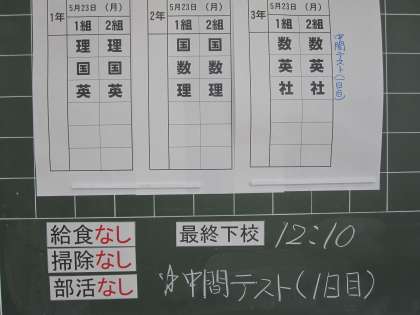 1年 5月23日 (月) 2年 5月23日 (月) 3年 5月23日 (月)
1組 2組 1組 2組 1組 2組
理 理 国 国 数 数
国 国 数 数 英 英
英 英 理 理 社 社
※中間テスト(1日目)
給食なし 最終下校 12:10
掃除なし
部活なし ※中間テスト(1日目)